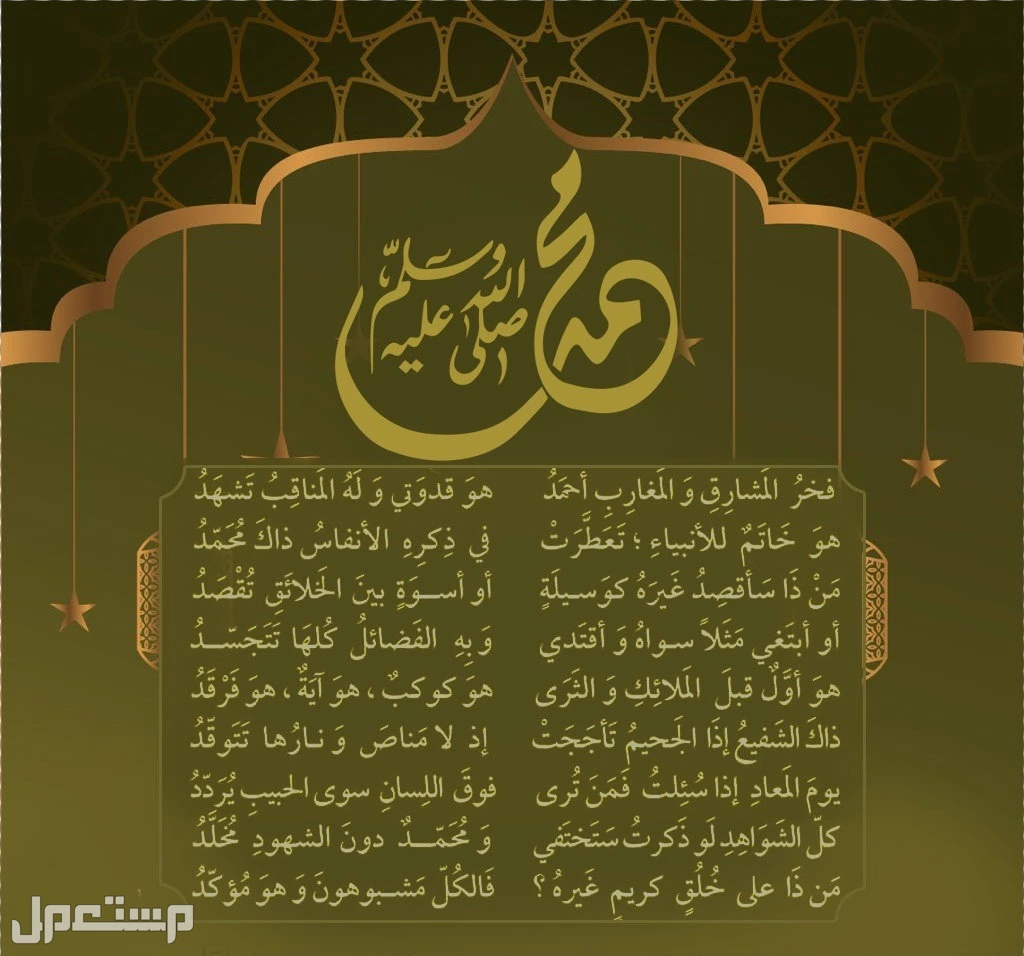 محمد صلى الله عليه وسلم
فخرُ المَشارِقِ وَ المَغارِبِ أحمَدُ هوَ قدوَتي وَ لَهُ المَناقِبُ تَشهَدُ
هوَ خَاتَمٌ للأنبياءِ ؛ تَعَطَّرَتْ في ذِكرِهِ الأنفاسُ ذاكَ مُحَمّدُ
مَنْ ذَا سَأقصِدُ غَيرَهُ كوَسـيلَةٍ أو أسـوَةٍ بينَ الخَلائَقِ تُقْصَدُ
أو أبتَغي مَثَلاً سـواهُ وَ أقتَدي وَ بِهِ الفَضائلُ كُلهَا تَتَجَسّـدُ
هوَ أوَّلٌ قبلَ المَلائِكِ وَ الثرَى هوَ كوكبٌ ، هوَ آيَةٌ ، هوَ فَرْقَدُ
ذاكَ الشَفيعُ إذَا الجَحيمُ تَأجَجَتْ إذ لا مَناصَ وَ نـارُها تَتَوقّدُ
يومَ المَعادِ إذا سُئِلتُ فَمَنَ تُرى فوقَ اللِسانِ سوى الحبيبِ يُرَدّدُ
كلّ الشَوَاهِدِ لَو ذَكرتُ سَتَختَفي وَ مُحَمّـدٌ دونَ الشهودِ مُخَلَّدُ
مَن ذَا على خُلُقٍ كريمٍ غَيرهُ ؟ فَالكُلّ مَشـبوهونَ وَ هوَ مُؤكّدُ
مستعمل